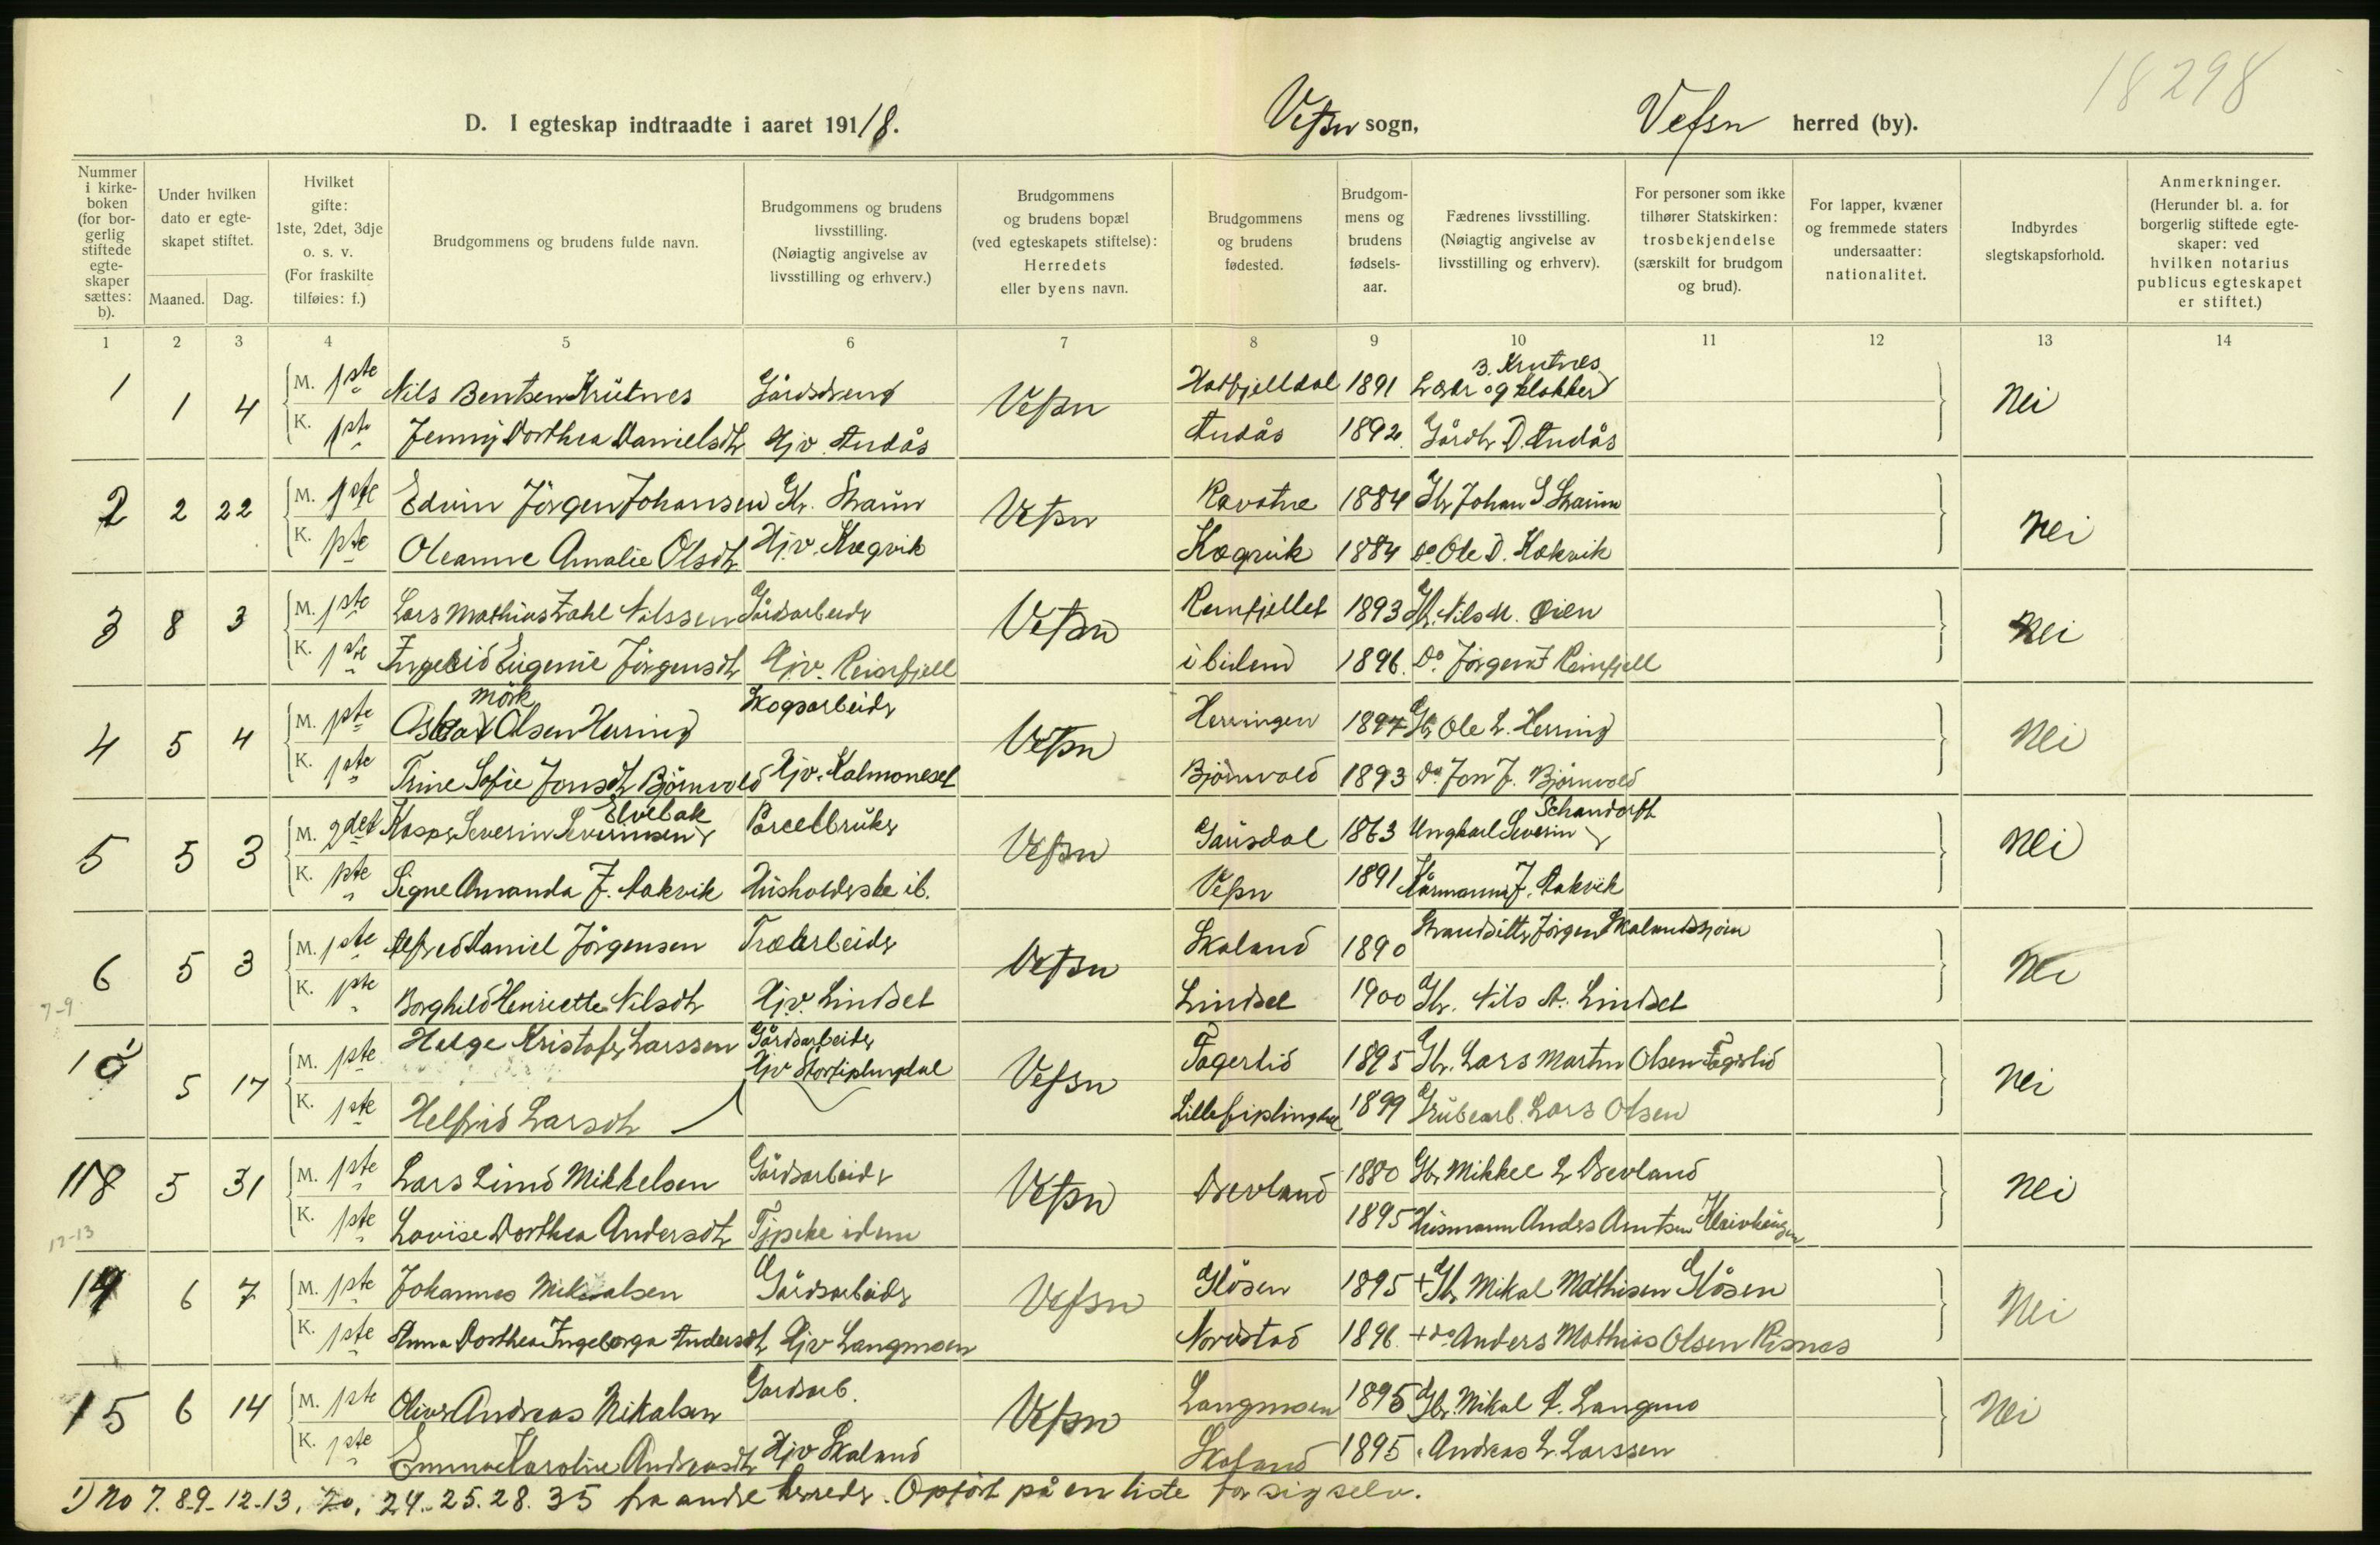 18298
D. I egteskap indtraadte i aaret 1918. Vefsn sogn, Vefsn herred (by).
Nummer i kirkeboken (for borgerlig stiftede egteskaper sættes: b).
Under hvilken dato er egteskapet stiftet.
Maaned. Dag.
Hvilket gifte: 1ste, 2det, 3dje o. s. v. (For fraskilte tilføies: f.)
Brudgommens og brudens fulde navn.
Brudgommens og brudens livsstilling. (Nøiagtig angivelse av livsstilling og erhverv.)
Brudgommens og brudens bopæl (ved egteskapets stiftelse): Herredets eller byens navn.
Brudgommens og brudens fødested.
Brudgommens og brudens fødselsaar.
Fædrenes livsstilling. (Nøiagtig angivelse av livsstilling og erhverv).
For personer som ikke tilhører Statskirken: trosbekjendelse (særskilt for brudgom og brud).
For lapper, kvæner og fremmede staters undersaatter: nationalitet.
Indbyrdes slegtskapsforhold.
Anmerkninger. (Herunder bl. a. for borgerlig stiftede egteskaper: ved hvilken notarius publicus egteskapet er stiftet.)
1 2 3 4 5 6 7 8 9 10 11 12 13 14
1 1 4 M. 1ste Nils Bentsen Krutnes Gårdsdreng Vefsn Hatfjelldal 1891 Lærer og klokker B. Krutnes Nei
K. 1ste Jenny Dorthea Danielsdtr Hjv. Andås Andås 1892. Gårdbr D. Andås
2 2 22 M. 1ste Edvin Jörgen Johansen Gbr. Vefsn 1884 Gbr Johan S. Nei
K. 1ste Oleanne Amalie Olsdtr Hjv. Kægvik Kægvik 1884 Do Ole D. Kækvik
3 8 3 M. 1ste Lars Mathias Zahl Nilssen Gårdsarbeider Vefsn Remfjellet 1893 Gbr. Nils M. Øien Nei
K. 1ste Ingebrid Eugenie Jörgensdtr Hjv. Reinfjell ibidem 1896. Do. Jörgen J Reinfjell
4 5 4 M. 1ste Oskar Mörk Olsen Herring Skogsarbeider Vefsn Herringen 1897 Gbr Ole L. Herring Nei
K. 1ste Trine Sofie Jonsdtr Björnvold Hjv. Kalmoneset Björnvold 1893 Do. Jon J. Björnvold
5 5 3 M. 2det Kasper Severin Severinsen Elvebak Parcelbruker Vefsn Gausdal 1863 Ungkarl Severin Schandorff Nei
K. 1ste Signe Amanda J. Aakvik Husholderske ib. Vefsn 1891 Kårmann J. Aakvik
6 5 3 M. 1ste Alfred Daniel Jörgensen Træarbeider Vefsn Skaland 1890 Strandsitter Jörgen Nei
K. 1ste Borghild Henriette Nilsdtr Hjv. Lindset Lindset 1900 Gbr. Nils A. Lindset
7-9
10 1) 5 17 M. 1ste Helge Kristofer Larssen Gårdsarbeider Vefsn Fagerlid 1895 Gbr. Lars Martin Olsen Fagerlid Nei
K. 1ste Helfrid Larsdtr Hjv Storfiplingdal Lillefiplingdal 1899 Grubearb. Lars Olsen
11 5 31 M. 1ste Lars Lund Mikkelsen Gårdsarbeider Vefsn Drevland 1880 Gbr Mikkel L Drevland Nei
K. 1ste Lovise Dorthea Andersdtr Tjeneste idem 1895 Husmann Anders Arntsen
12-13
14 6 7 M. 1ste Johannes Mikalsen Gårdsarbeider Vefsn Glösen 1895 + Gbr Mikal Mathisen Glösen Nei
K. 1ste Anna Dorthea Ingeborga Andersdtr Hjv Langmoen Nordstad 1896. + do Anders Mathias Olsen Risnes
15 6 14 M. 1ste Oliver Andreas Mikalsen Gardsarb. Vefsn Langmoen 1895 Gbr. Mikal A. Langmo Nei
K. 1ste Emma Karoline Andreasdtr Hjv Skaland Skaland 1895 " Andreas L. Larssen
1) No 7. 8-9-12-13, 20, 24-25. 28. 35 fra andre herreder. Opfört på en liste for sig selv.